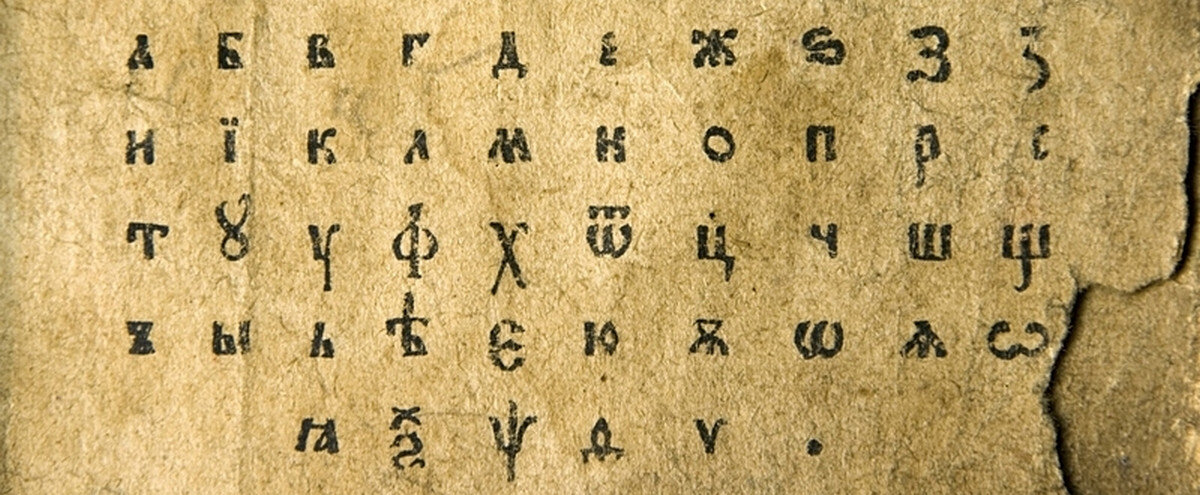 а б в г д е ж ѕ з ꙁ
и ї к л м н о п р с
т ꙋ у ф х ѿ ц ч ш щ
ъ ы ь ѣ є ю ѫ ѡ ѧ ꙍ
ꙗ ѯ ѱ ѳ ѵ .